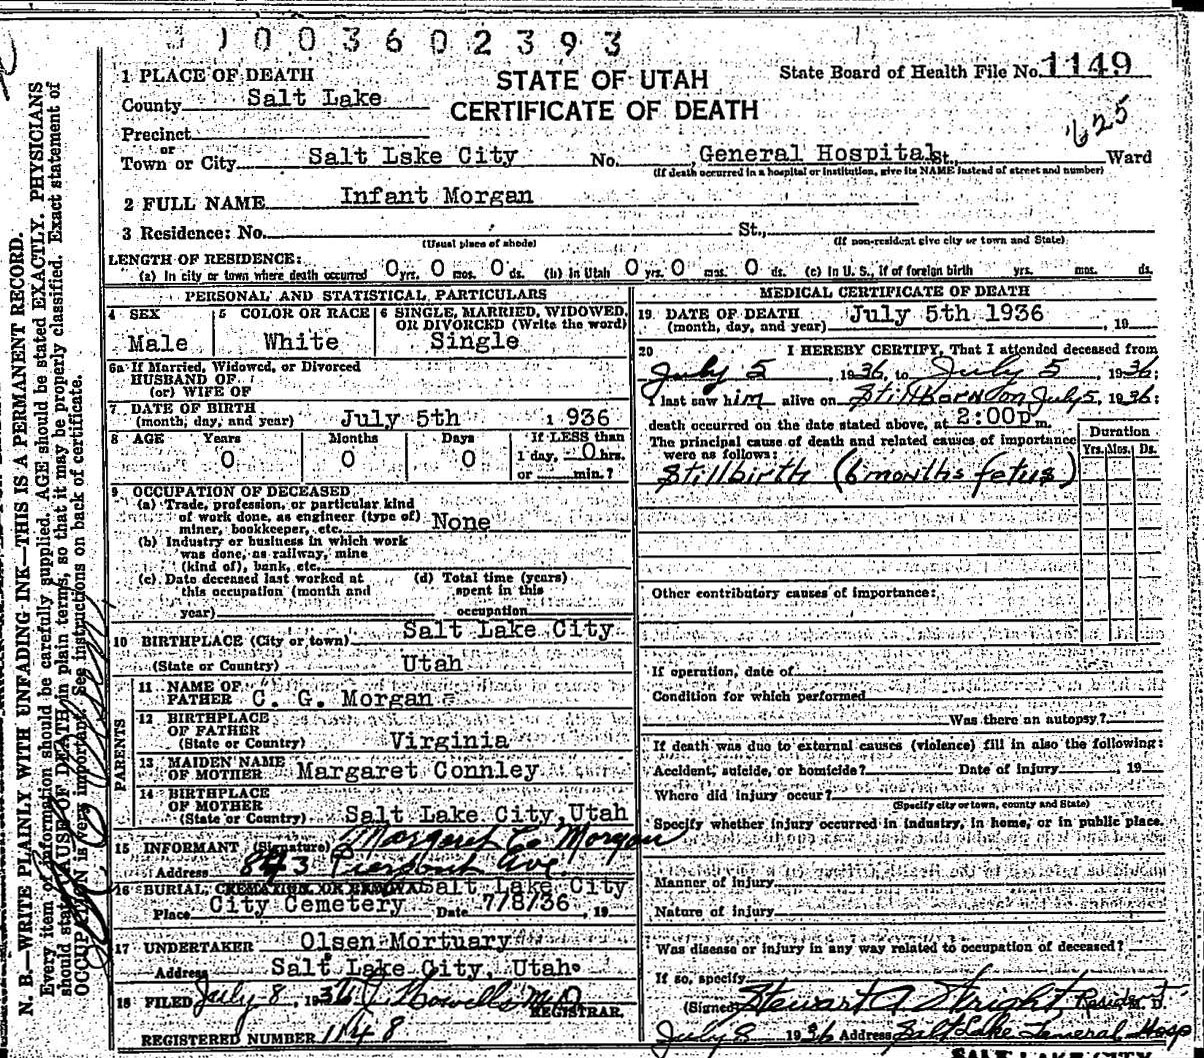 1003602393
1 PLACE OF DEATH
STATE OF UTAH
State Board of Health File No. 1149
County Salt Lake
CERTIFICATE OF DEATH
625
Precinct
or
Town or City Salt Lske City No. General Hospital St., Ward
(If death occurred in a hospital or institution, give its NAME instead of street and number)
2 FULL NAME Infant Morgan
3 Residence: No. St.,
(Usual place of abode) (If non-resident give city or town and State)
LENGTH OF RESIDENCE:
(a) In city or town where death occurred 0 yrs. 0 mos. 0 ds. (b) In Utah 0 yrs. 0 mos. 0 ds. (c) In U. S., if of foreign birth yrs. mos. ds.
PERSONAL AND STATISTICAL PARTICULARS
4 SEX 5 COLOR OR RACE 6 SINGLE, MARRIED, WIDOWED,
OR DIVORCED (Write the word)
Male White Single
6a If Married, Widowed, or Divorced
HUSBAND OF
(or) WIFE OF
7 DATE OF BIRTH
(month, day, and year) July 5th 1936
8 AGE Years Months Days If LESS than
0 0 0 1 day, 0 hrs.
or min.?
9 OCCUPATION OF DECEASED
(a) Trade, profession, or particular kind
of work done, as engineer (type of)
miner, bookkeeper, etc. None
(b) Industry or business in which work
was done, as railway, mine
(kind of), bank, etc.
(c) Date deceased last worked at (d) Total time (years)
this occupation (month and spent in this
year) occupation
10 BIRTHPLACE (City or town) Salt Lake City
(State or Country) Utah
PARENTS
11 NAME OF
FATHER C. G. Morgan
12 BIRTHPLACE
OF FATHER
(State or Country) Virginia
13 MAIDEN NAME
OF MOTHER Margaret Connley
14 BIRTHPLACE
OF MOTHER
(State or Country) Salt Lake City, Utah
15 INFORMANT (Signature) Margaret Co Morgan
Address 843 Pierpont Ave.
16 BURIAL, CREMATION OR REMOVAL Salt Lake City
Place City Cemetery Date 7/8/36, 19
17 UNDERTAKER Olsen Mortuary
Address Salt Lake City, Utah
18 FILED July 8, 1936 M.D.
REGISTRAR.
REGISTERED NUMBER 1148
MEDICAL CERTIFICATE OF DEATH
19 DATE OF DEATH
(month, day, and year) July 5th 1936, 19
20 I HEREBY CERTIFY, That I attended deceased from
July 5, 1936, to July 5, 1936;
I last saw him alive on Stillborn on July 5, 1936;
death occurred on the date stated above, at 2:00p m.
The principal cause of death and related causes of importance
were as follows:
Duration
Yrs. Mos. Ds.
Stillbirth (6 months fetus)
Other contributory causes of importance:
If operation, date of
Condition for which performed
Was there an autopsy?
If death was due to external causes (violence) fill in also the following:
Accident, suicide, or homicide? Date of injury, 19
Where did injury occur?
(Specify city or town, county and State)
Specify whether injury occurred in industry, in home, or in public place.
Manner of injury
Nature of injury
Was disease or injury in any way related to occupation of deceased?
If so, specify
(Signed) Stewart A Wright Resident M. D.
July 8 1936 Address Salt Lake General Hosp
SALT LAKE CITY
N. B.—WRITE PLAINLY WITH UNFADING INK—THIS IS A PERMANENT RECORD.
Every item of information should be carefully supplied. AGE should be stated EXACTLY. PHYSICIANS
should state CAUSE OF DEATH in plain terms, so that it may be properly classified. Exact statement of
OCCUPATION is very important. See instructions on back of certificate.